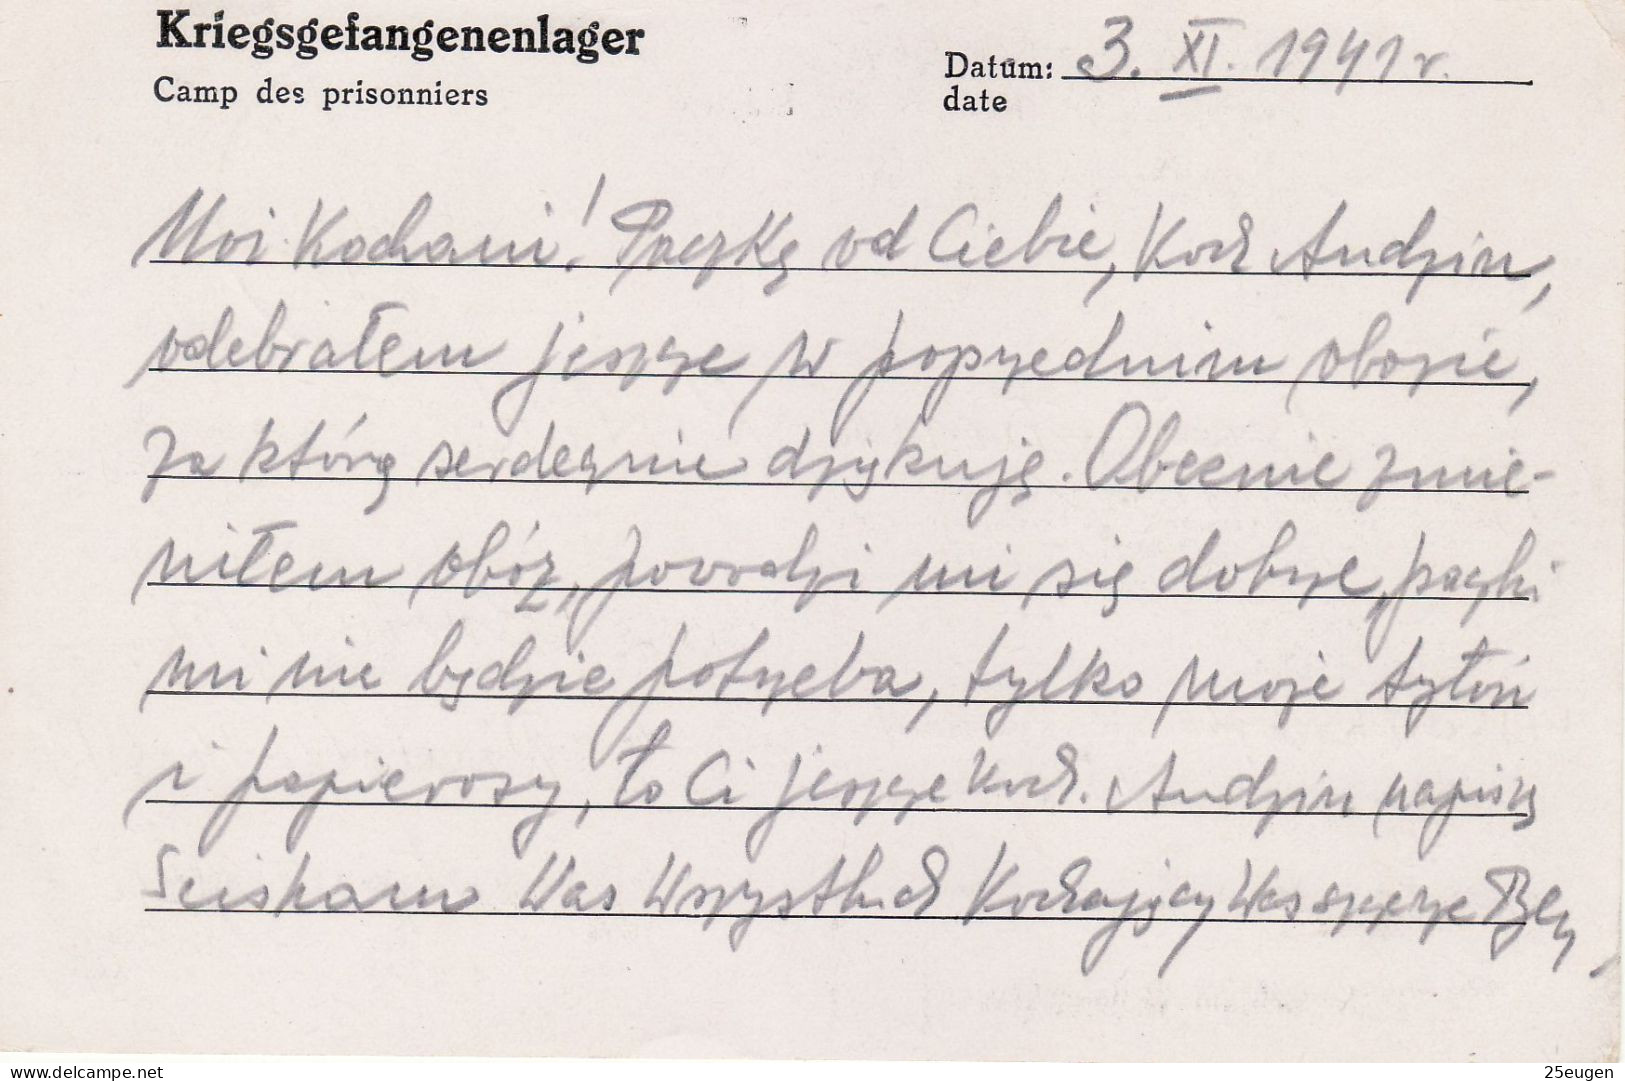 Kriegsgefangenenlager
Camp des prisonniers
Datum: 3. XI. 1941 r.
date
Moi Kochani! Paczkę od Ciebie, Koch Andziu,
odebrałem jeszcze w poprzednim obozie,
za którą serdecznie dziękuję. Obecnie zmie-
niłem obóz, powodzi mi się dobrze, paczki
mi nie będzie potrzeba, tylko może tytoń
i papierosy, to Ci jeszcze Koch. Andziu napiszę
Sciskam Was Wszystkich Kochający Was szczerze
www.delcampe.net
25eugen